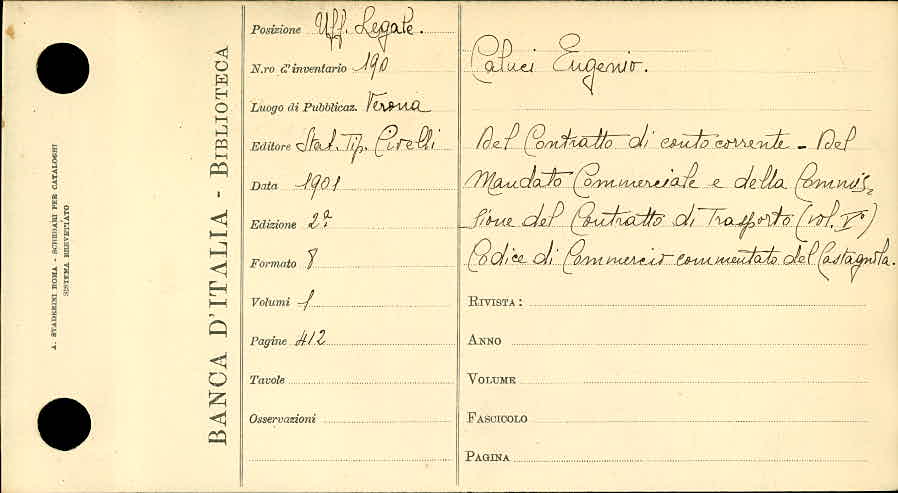 A. STADERINI ROMA - SCHEDARI PER CATALOGHI
SISTEMA BREVETTATO
BANCA D'ITALIA - BIBLIOTECA
Posizione Uff. Legale.
N.ro d'inventario 190
Luogo di Pubblicaz. Verona
Editore Stab. Tip. Civelli
Data 1901
Edizione 2ª
Formato 8
Volumi 1
Pagine 412
Tavole
Osservazioni
Caluci Eugenio.
Del Contratto di conto corrente - Del
Mandato Commerciale e della Commis=
sione del Contratto di Trasporto (vol. V°)
Codice di Commercio commentato del Castagnola.
RIVISTA:
ANNO
VOLUME
FASCICOLO
PAGINA